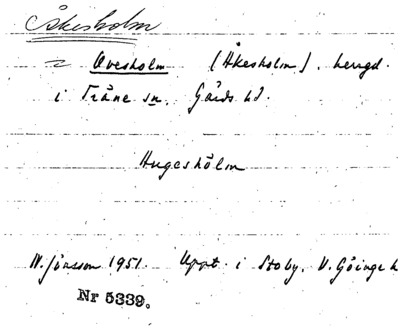 Åkesholm
= Ovesholm (Åkesholm), herrgd.
i Träne sn. Gärds hd.
Hugeshölm
W. Jönsson 1951. Uppt. i Stoby, V. Göinge h
Nr 5339.